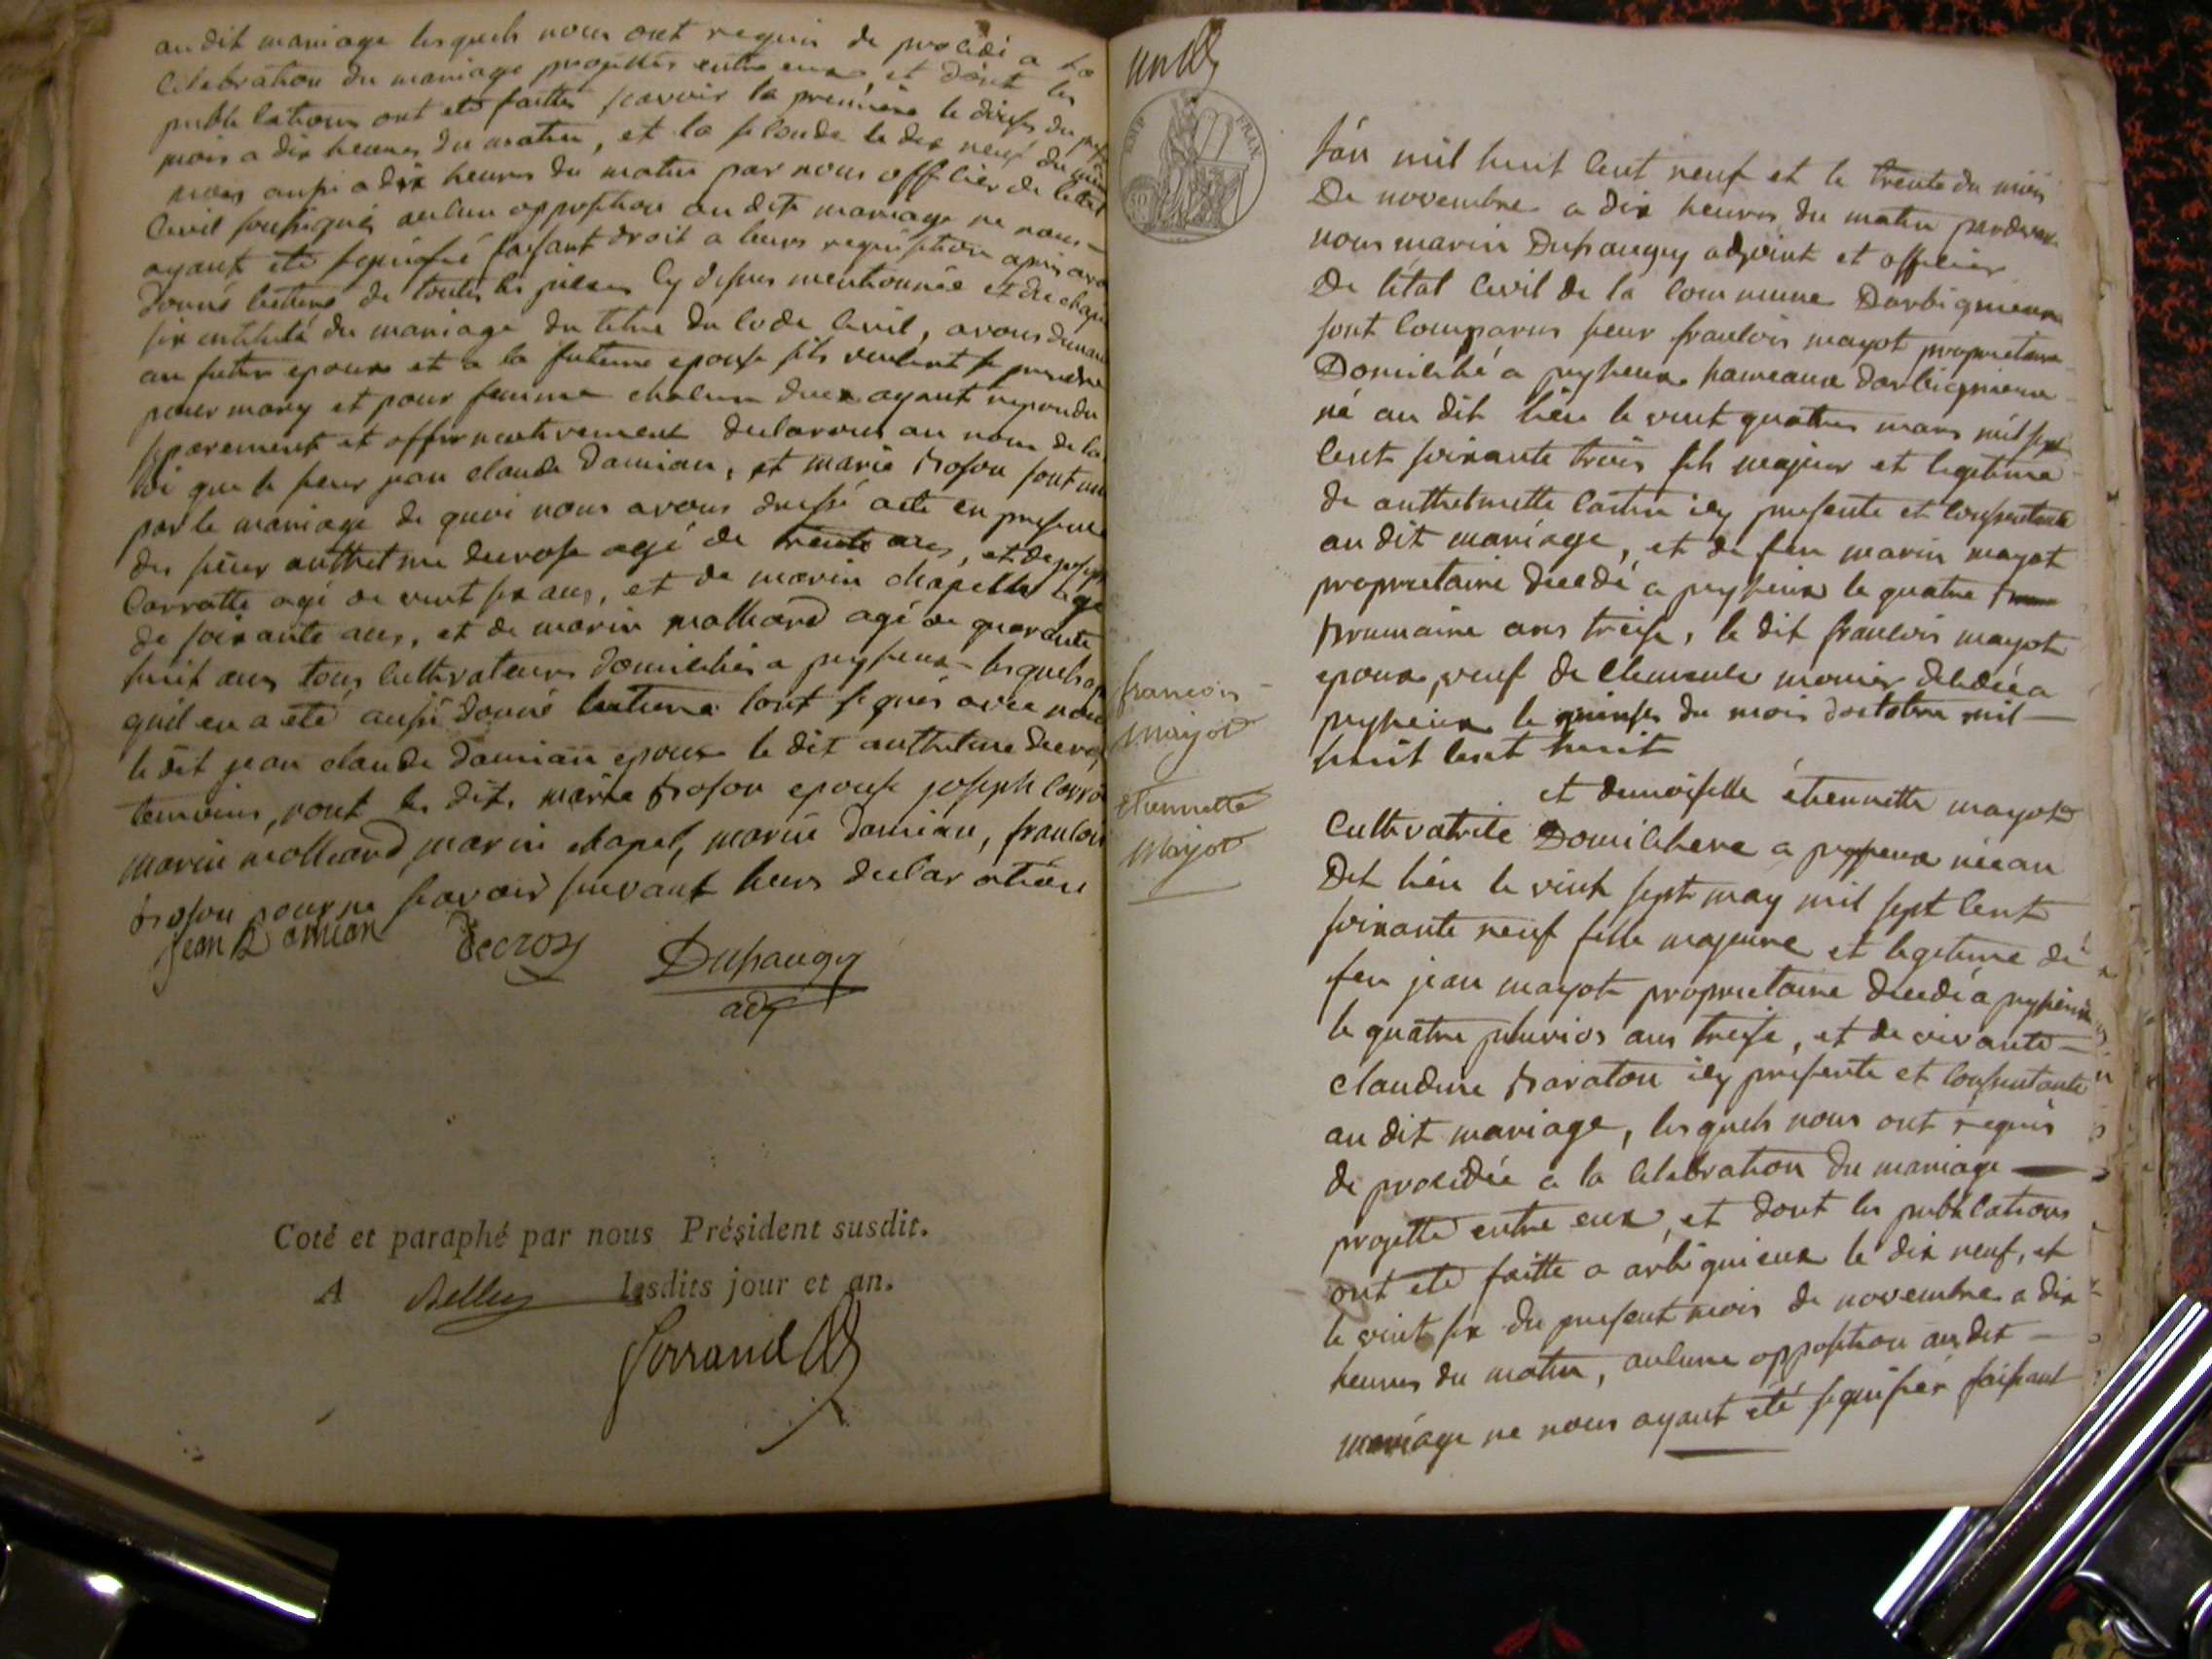 au dit mariage lesquels nous ont requis de procédé a la
célébration du mariage projettés entre eux, et dont les
publications ont été faittes scavoir la première le douse du
mois a dix heures du matin, et la seconde le dix neuf du
mois aussi a dix heures du matin par nous officier de letat
civil soussignés aucune opposition au dits mariage ne nous
ayant été signifié faisant droit a leurs requisition apres avoir
donné lecture de toutes les pieces cy dessus mentionnée et du chapi
six intitulé du mariage du titre du code civil, avons demandé
au futur epoux et a la future epouse sils veulent se prendre
pour mary et pour femme chacun deux ayant repondu
separement et affirmativement declarons au nom de la
loi que le sieur jean claude damian, et marie Boson sont uni
par le mariage de quoi nous avons dressé acte en presence
des sieur anthelme decrose agé de trente ans, et de joseph
Carrotte agé de vint six ans, et de marin chapelle agé
de soixante ans, et de marin molliard agé de quarante
huit ans tous cultivateurs domiciliés a peysieux lesquels a
quil en a été aussi donné lecture lont signés avec nous
le dit jean claude damian epoux le dit anthelme decros
temoins, nont les dits marie Boson epouse joseph Carro
marin molliard, marin chapel, marie damian, francois
Boson pour ne scavoir suivant leurs declaration
Jean Damian Decroz Dupaugey
adj
Coté et paraphé par nous Président susdit.
A Belley lesdits jour et an.
un
EMP FRAN.
50
francois
mayot
etiennette
mayot
lan mil huit cent neuf et le trente du mois
De novembre a dix heures du matin pardevant
nous marin Dupaugey adjoint et officier
De létat civil de la commune Darbignieux
sont comparus sieur francois mayot propriétaire
Domicilié a peysieux hameaux darbignieux
né au dit lieu le vint quatres mars mil sept
cent soixante trois fils majeur et legitime
de anthelmette cartin icy presente et consentante
au dit mariage, et de feu marin mayot
propriétaire decedé a peysieux le quatre
Brumaire ans treise, le dit francois mayot
epoux, veuf de clemence monier decedée a
peysieux le quinse du mois doctobre mil
huit cent huit
et demoiselle étiennette mayot
Cultivatrice Domiciliere a peysieux née au
Dit lieu le vint sept may mil sept cent
soixante neuf fille majeure et legitime de
feu jean mayot propriétaire decedé a peysieux
le quatre pluvios ans treise, et de vivante
claudine Baraton icy presente et consentante
au dit mariage, lesquels nous ont requis
de procédée a la celebration du mariage
projetté entre eux, et dont les publications
ont été faitte a arbignieux le dix neuf, et
le vint six du present mois de novembre a dix
heures du matin, aucune opposition au dit
mariage ne nous ayant été signifiés faisant